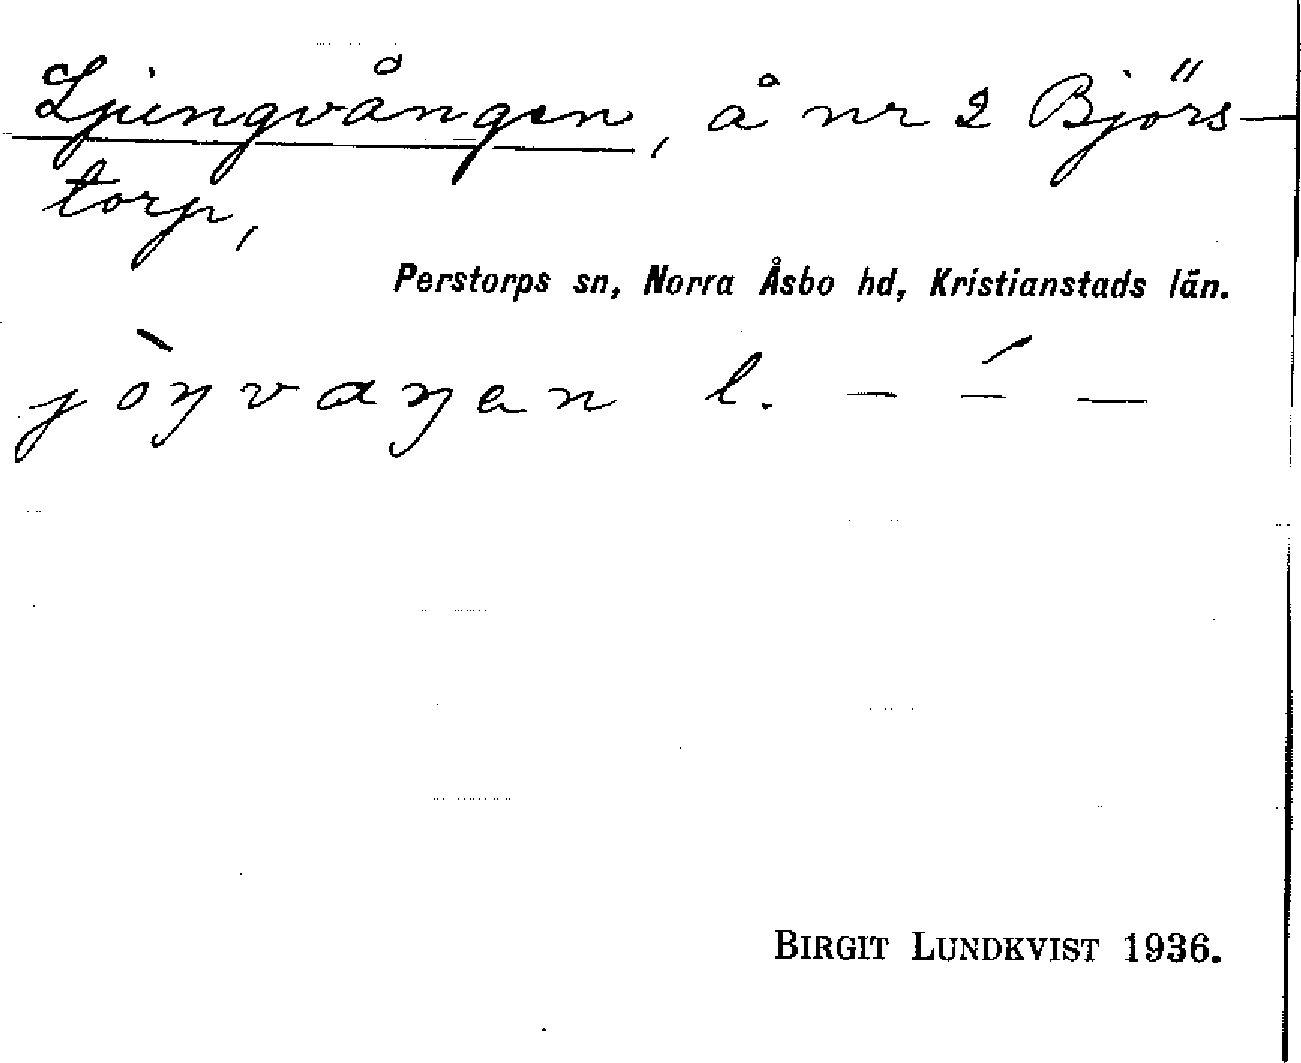 Ljungvången, å nr 2 Björs-
torp,
Perstorps sn, Norra Åsbo hd, Kristianstads län.
jòŋvaŋen l. – –́ –
BIRGIT LUNDKVIST 1936.